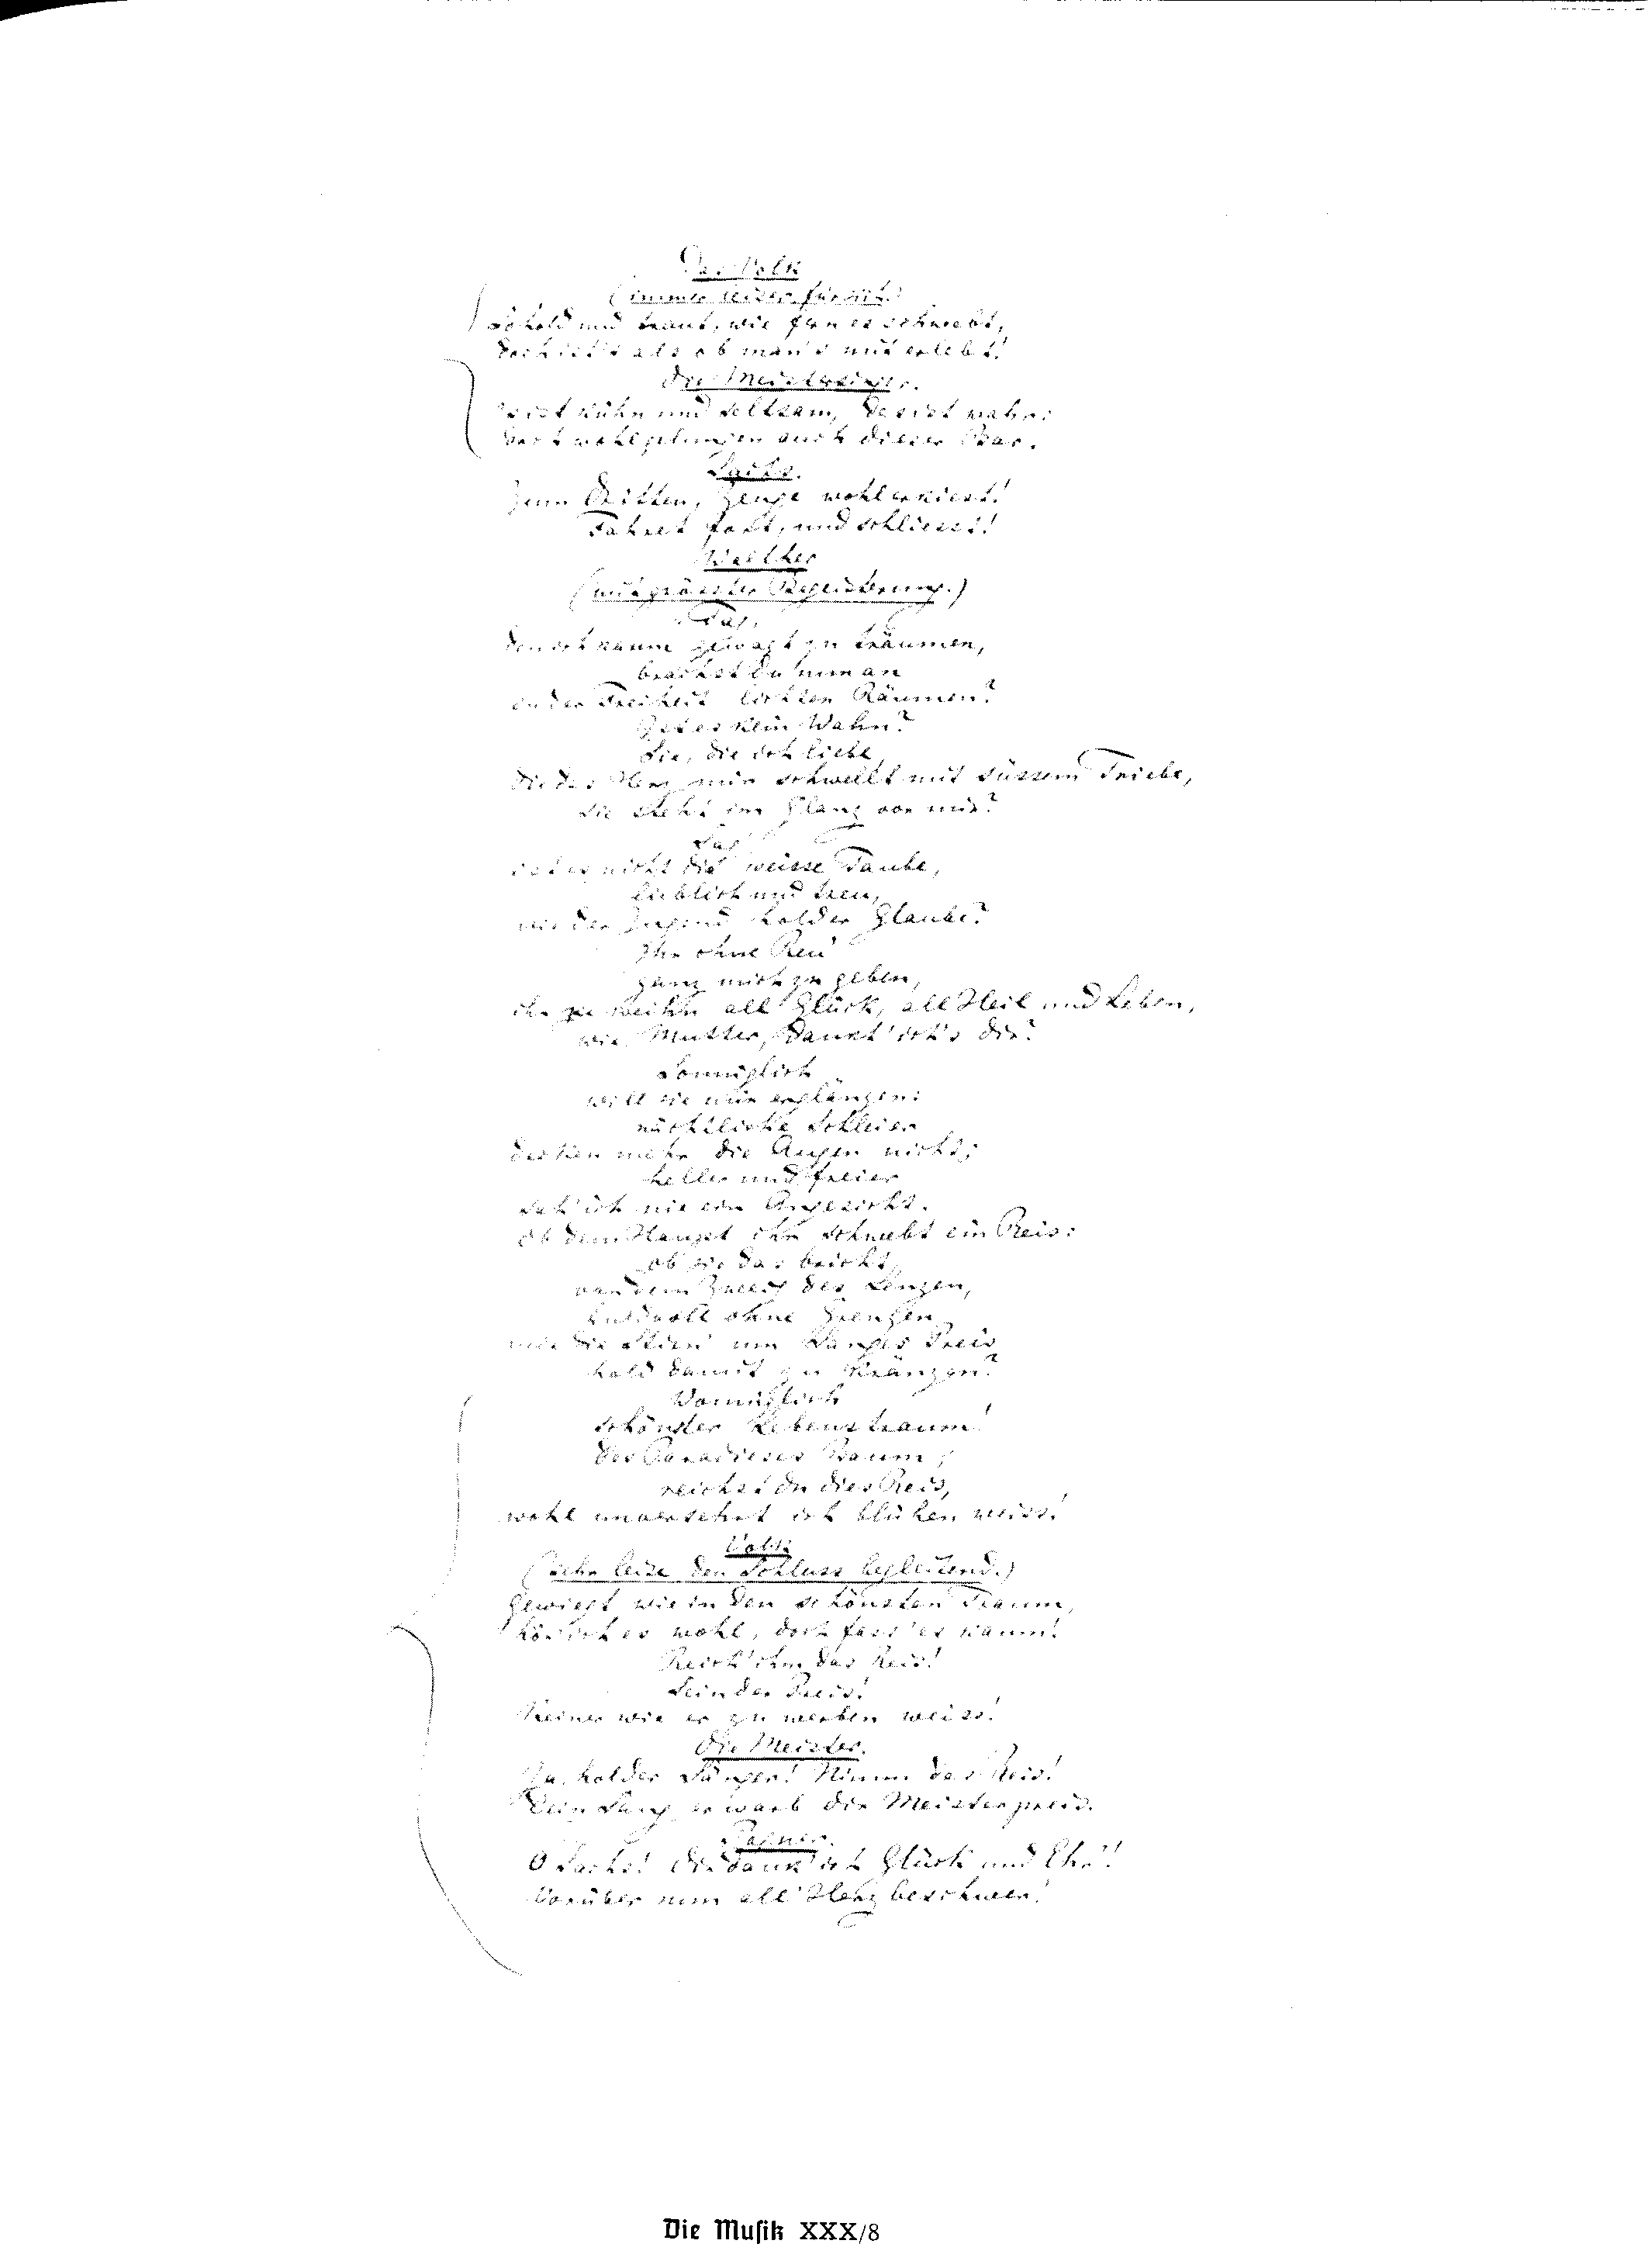 Das Volk
(immer leise für sich.)
So hold und traut, wie fern es schwebt,
doch ist's als ob man's mit erlebt!
Die Meistersinger.
's ist kühn und seltsam, das ist wahr:
doch wohlgelungen auch dieser Bar.
Sachs.
Zum dritten, Zeuge wohl erkiest!
Fahret fort, und schliesst!
Walther
(mit grösster Begeisterung.)
Tag,
den ich kaum gewagt zu träumen,
brachst du nun an
in der Freiheit lichten Räumen?
Ist es kein Wahn?
Sie, die ich liebe,
die das Herz mir schwellt mit süssem Triebe,
sie steht im Glanz vor mir?
Sag'
ist es nicht die weisse Taube,
lieblich und treu,
wie der Jugend holder Glaube?
Ihr ohne Reu'
ganz mich zu geben,
ihr zu weihn all Glück, all Heil und Leben,
wie, Mutter, dankt' ich's dir?
Sonniglich
will sie mir erglänzen:
nächtliche Schleier
decken mehr die Augen nicht;
heller und freier
sah' ich nie ein Angesicht.
Ob dem Haupt ihr schwebt ein Reis:
ob sie das bricht,
von dem Zweig des Lenzen,
huldvoll ohne Grenzen
mir die Stirn' um Sanges Preis
hold damit zu kränzen?
Wonniglich
schönster Lebenstraum!
Des Paradieses Baum,
reichst du dies Reis,
wohl unversehrt ich blühen weiss!
Volk
(sehr leise den Schluss begleitend.)
Gewiegt wie in den schönsten Traum,
hör' ich es wohl, doch fass' es kaum!
Reich' ihm das Reis!
Sein der Preis!
Keiner wie er zu werben weiss!
Die Meister.
Ja, holder Sänger! Nimm das Reis!
Dein Sang erwarb dir Meisterpreis.
Pogner.
O Sachs! Dir dank' ich Glück und Ehr'!
Vorüber nun all' Herzbeschwer!
Die Musik XXX/8